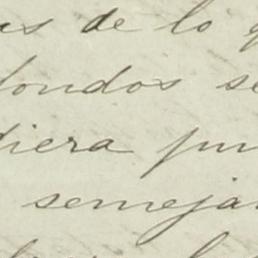 as de lo q
fondos se
diera pu
semeja